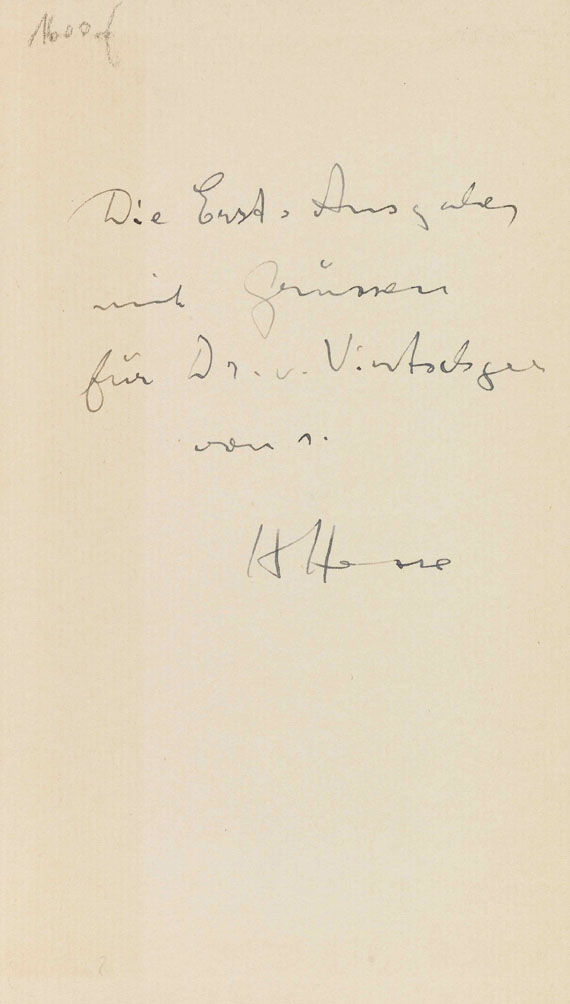 Die Erst-Ausgabe,
mit Grüssen
für Dr. v. Vintschger
von s.
H Hesse